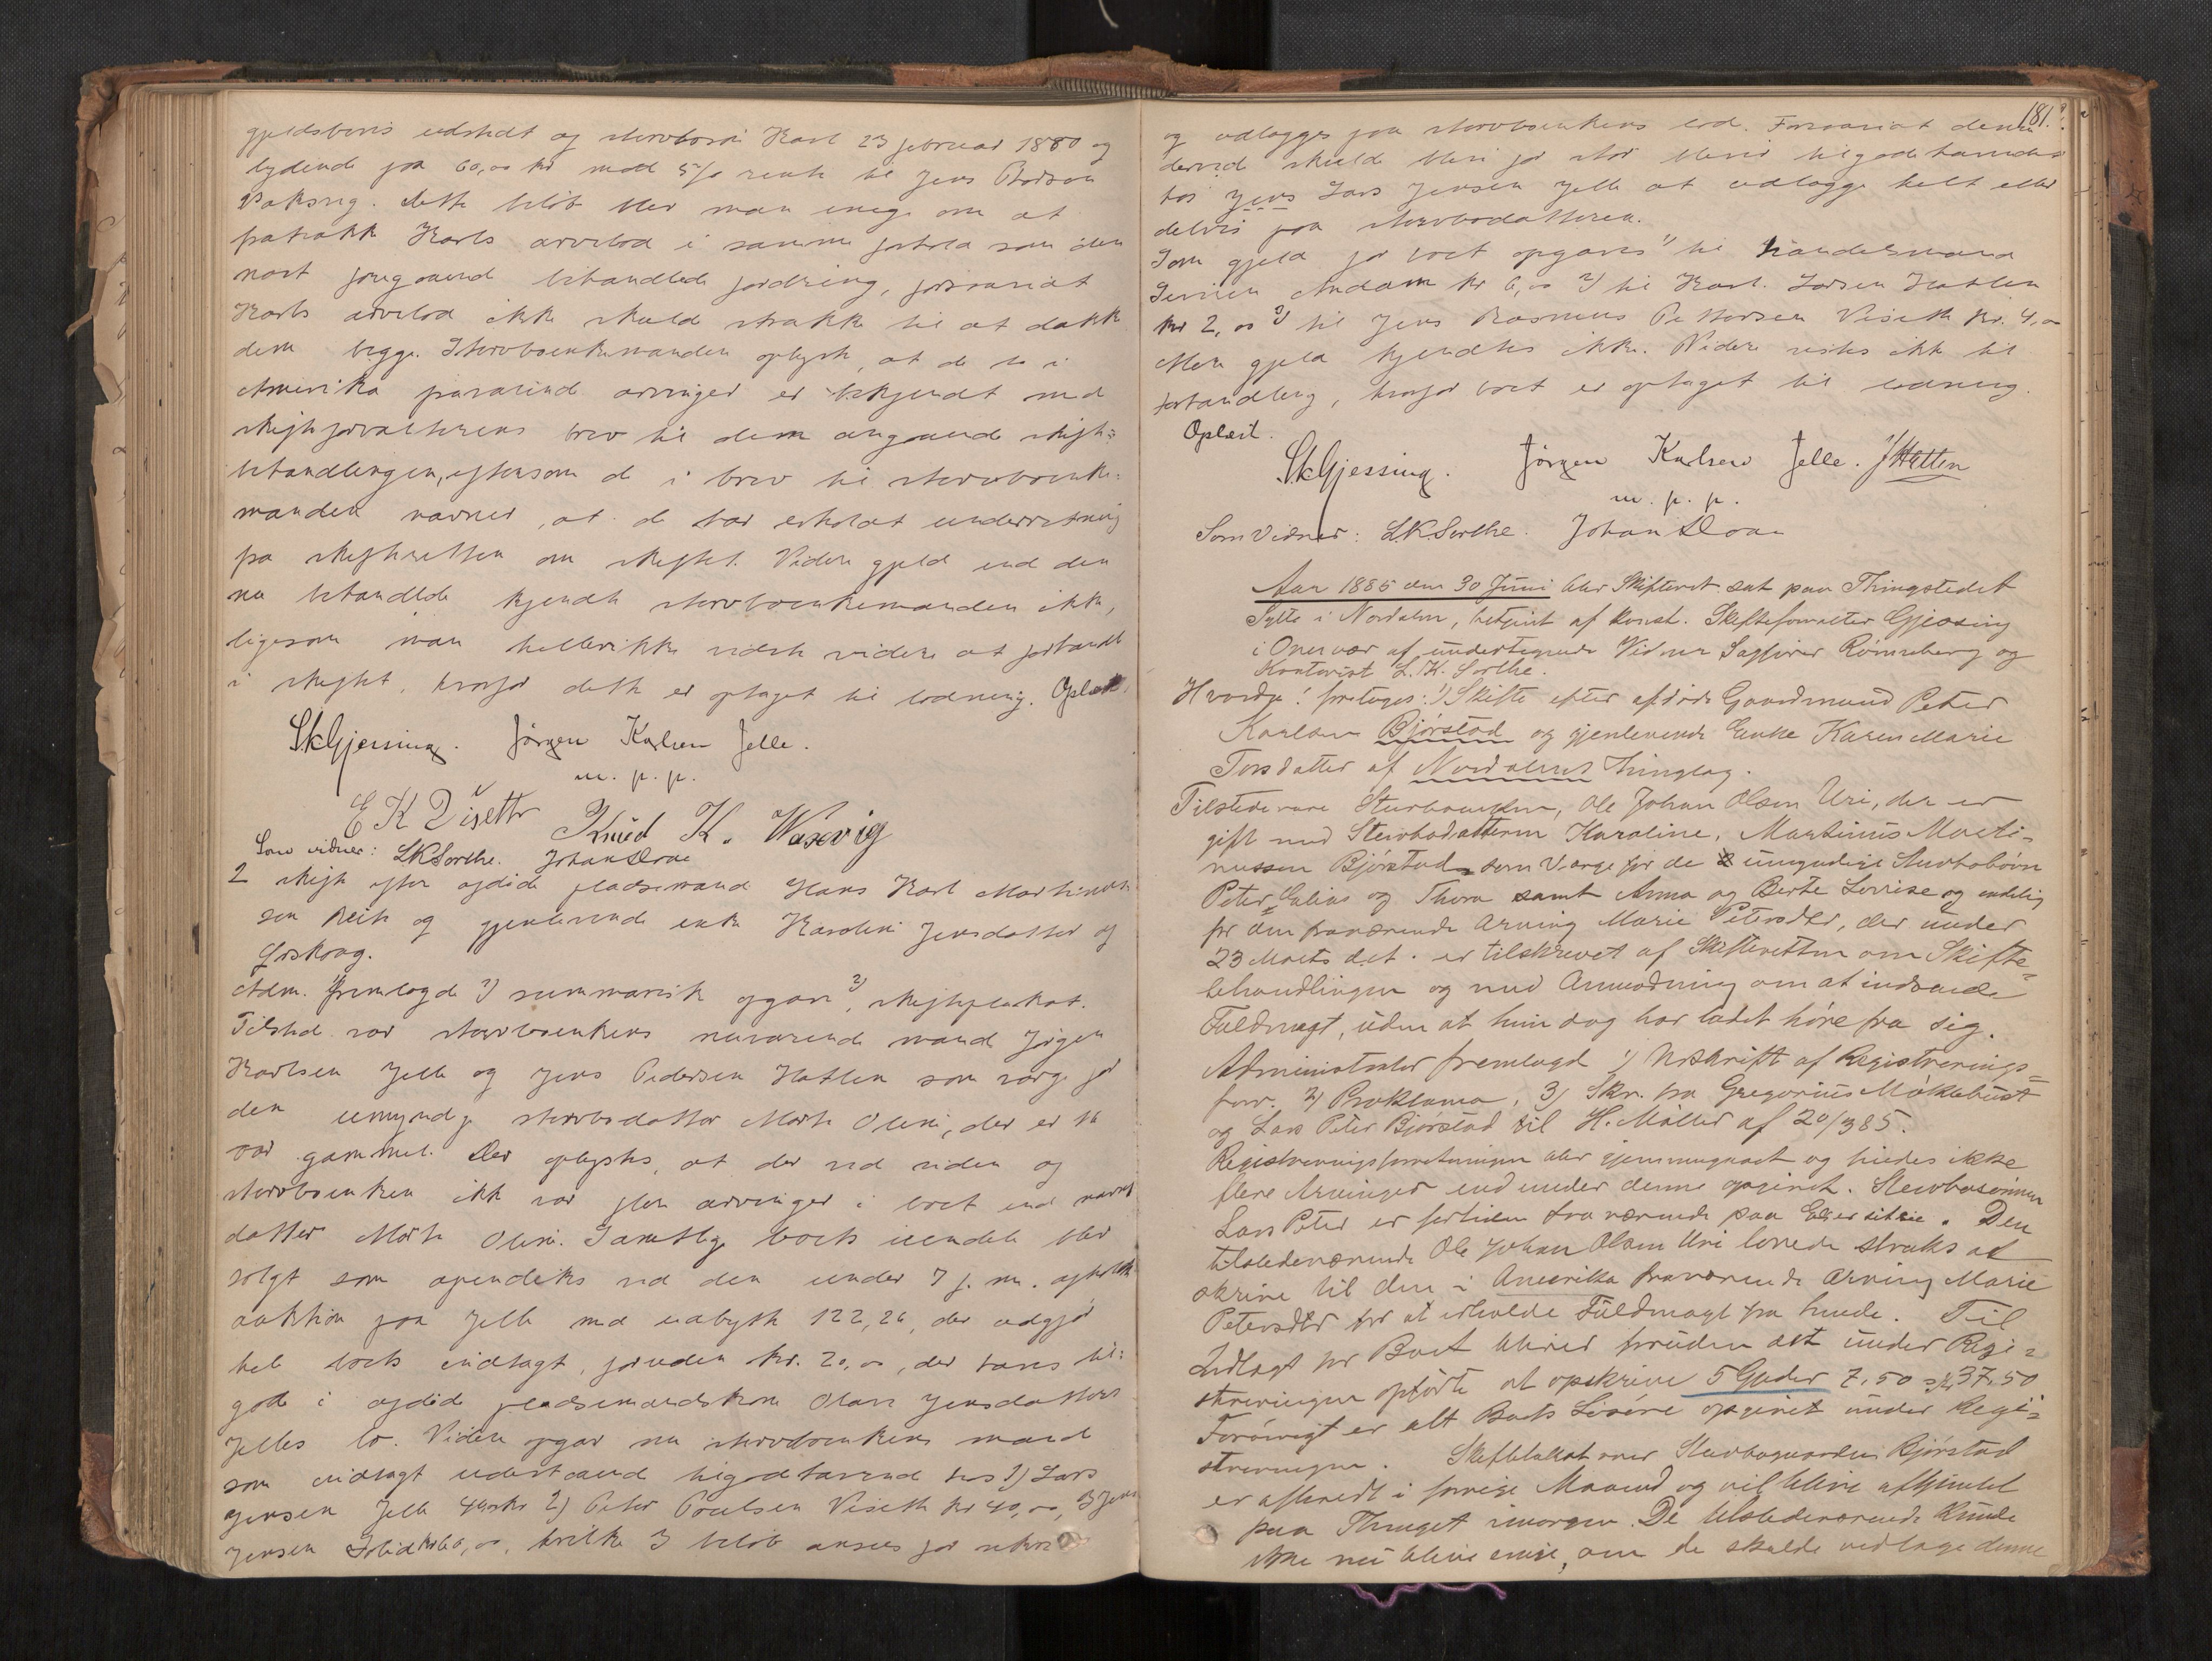 gjeldsbevis udstedt og stervbosøn Karl 23 februar 1880 og
lydende paa 60,00 kr med 5 % rente til Jens
Vaksvig. Dette beløb blev man enige om at
fratrække Karls arvelod i samme forhold som den
næst foregaaende behandlede fordring, forsaavidt
Karls arvelod ikke skulde strække til at dække
dem begge. Stervboenkemanden oplyste, at de to i
Amerika fraværende arvinger er bekjendt med
skifteforvalterens brev til dem angaaende skifte=
behandlingen, eftersom de i brev til stervboenke=
manden nævner, at de har erholdt underretning
fra skifteretten om skiftet. Videre gjeld end den
nu behandlede kjendte stervboenkemanden ikke,
ligesom man hellerikke vidste videre at forhandle
i skiftet, hvorfor dette er optaget til lodning. Oplæst.
SkGjessing. Jørgen Karlsen Jelle.
m. p. p.
E K Visette Knud K. Waxevig
Som vidner: LKSorthe. Johan
2 skifte efter afdøde pladsemand Hans Karl Martinus
sen Reite og gjenlevende enke Karoline Jensdatter af
Adm. fremlagde 1) summarisk opgave 2) skifteplakat.
Tilstede var stervboenkens nuværende mand Jørgen
Karlsen Jelle og Jens Pedersen Hatlen som værge for
den umyndige stervbodatter Marte Oline, der er 16
aar gammel. Det oplystes, at der ved siden af
stervboenken ikke var flere arvinger i boet end nævnte
datter Marte Oline. Samtlige boets eiendele blev
solgt som apendiks ved den under 7 f. m. afholdte
auktion paa Jelle med udbytte 122,26, der udgjør
hele boets indtægt, foruden kr. 20,00, der haves til=
gode i afdøde pladsemandskone Jensdatters
Jelles bo. Videre opgav nu stervboenkens mand
som indtægt udestaaende tilgodehavende hos 1) Lars
Jensen Jelle 2) Peter Poulsen Visette kr 40,00, 3 Jens
Jensen 60,00, hvilke 3 beløb ansees for
181.
og udlægges paa stervboenkens lod. Forsaavidt denne
derved skulde blive for stor bliver tilgodehavendet
hos Jens Lars Jensen Jelle at udlægge helt eller
delvis paa stervbodatteren.
Som gjeld for boet opgaves 1) til handelsmand
Severin Andaam kr 6,00 2) til Karl Larsen Hatlen
kr 2,00 3) til Jens Rasmus Pettersen Visette kr. 4,00
Mere gjeld kjendtes ikke. Videre vistes ikke til
forhandling, hvorfor boet er optaget til lodning.
Oplæst.
SkGjessing. Jørgen Karlsen Jelle. JHatlen
m. p. p.
Som Vidner: L.K.Sorthe. Johan
Aar 1885 den 30 Juni blev Skifteret sat paa Thingstedet
Sylte i Nordalen, betjent af konst. Skifteforvalter Gjessing
i Overvær af undertegnede Vidner Sagfører Rönneberg og
Kontorist L. K. Sorthe.
Hvorda! foretoges: 1) Skifte efter afdøde Gaardmand Peter
Karlsen Bjørstad og gjenlevende Enke Karen Marie
Torsdatter af Nordalens Thinglag.
Tilstede vare Stervboenken, Ole Johan Olsen Uri, der er
gift med Stervbodatteren Karoline, Martinus Marti=
nussen Bjørstad som Værge for de umyndige Stervbobørn
Peter Julius og Thora samt Anna og Berte Lovise og endelig
for den fraværende Arving Marie Petersdtr, der under
23 Marts d.A. er tilskrevet af Skifteretten om Skifte=
behandlingen og med Anmodning om at indsende
Fuldmagt, uden at hun dog har ladet høre fra sig.
Administrator fremlagde 1) Udskrift af Registrerings=
forr. 2) Proklama, 3) Skr. fra Gregorius Möklebust
og Lars Peter Bjørstad til H. Möller af 20/3 85.
Registreringsforretningen blev gjennemgaaet og havdes ikke
flere Arvinger end under denne opgivet. Stervbosønnen
Lars Peter er fortiden fraværende paa Exersitsie. Den
tilstedeværende Ole Johan Olsen Uri lovede straks at
skrive til den i Amerika fraværende Arving Marie
Petersdtr for at erholde Fuldmagt fra hende. Til
Indtægt for Boet bliver foruden det under Regi=
streringen opførte at opskrive 5 Gjeder 7,50 37,50
Forøvrigt er alt Boets Løsøre opgivet under Regi=
streringen. Skiftetakst over Stervbogaarden Bjørstad
er afhendt i forrige Maaned og vil blive afhjemlet
paa Thinget imorgen. De tilstedeværende kunde
ikke nu blive enige, om de skulde vedtage denne